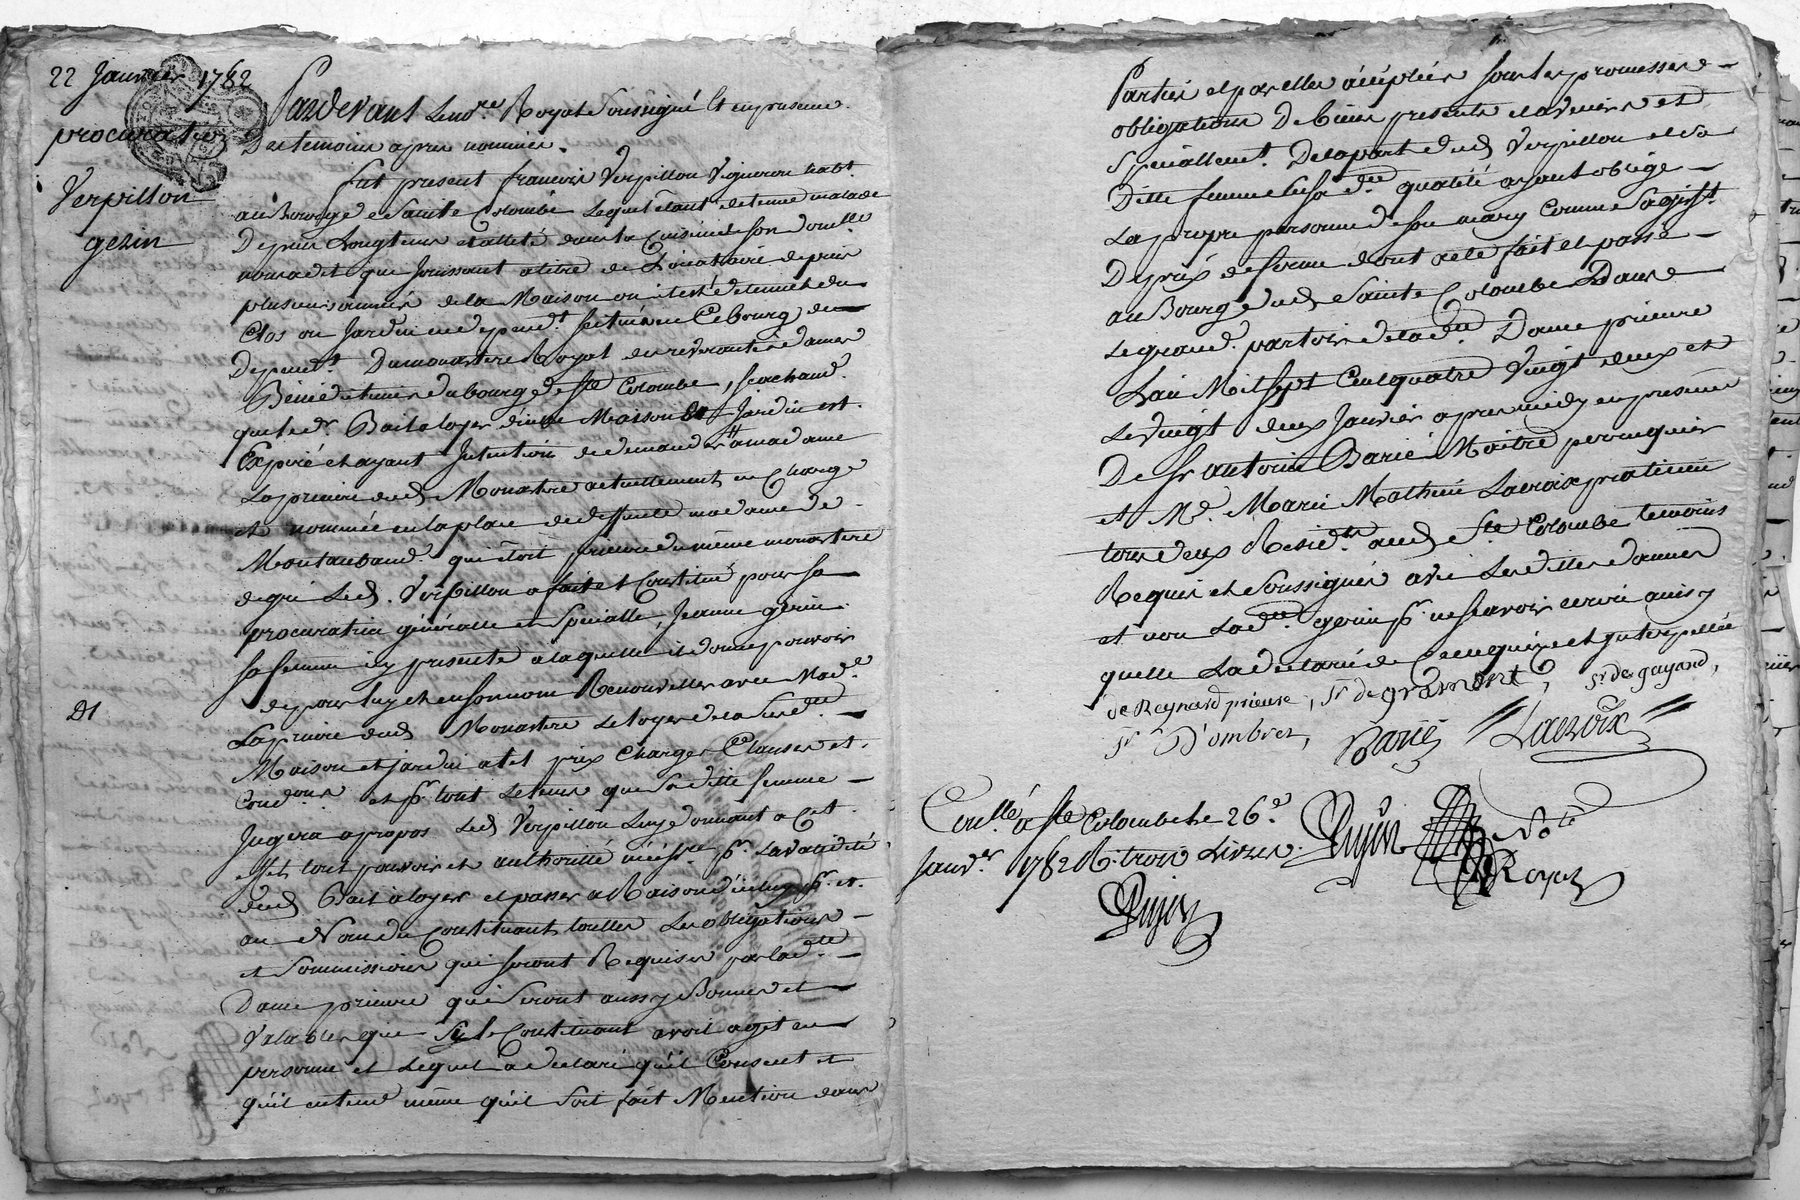 22 Janvier 1782
procuration
Verpillon
gerin
Pardevant Le no.re Royal Soussigné Et en presence
Des temoins apres nommés.
fut present francois Verpillon Vigneron habt.
au Bourg de Sainte Colombe Lequel étant detenu malade
Depuis Longtems et alleté dans la Cuisine de son
nous a dit que Jouissant a titre de Locataire depuis
plusieurs années de la Maison ou il est detenu et du
Clos ou Jardin en depend.t scitués en Ce bourg de
Depend.t Du monastere Royal des reverantes dames
Benedictines du bourg de Ste Colombe, sachand
que led. Bail a loyer de une Maison & Jardin est
Expiré et ayant Intention de demander a madame
La prieure dud. Monastere actuellement en Charge
et nommée en la place de deffunte madame de
Montauband qui étoit prieure du même monastere
de gré Led. Verpillon a fait et Constitué pour sa
procuratrice générale et Spécialle, Jeanne gerin
sa femme icy presente a laquelle il donne pouvoir
de pour luy et en son nom Renouveller avec Mad.e
La prieure dud. Monastere Le loyer de la Susd.tte
Maison et jardin a tel prix Charges Clauses et
Cond.ons et p.r tout Le tems que Sa ditte femme
Jugera apropos Led. Verpillon Luy donnant a Cet
effet tout pouvoir et authorité p.r La validité
dud. Bail a loyer et passer a Raison d'icelluy p.r et
au Nom du Constituant touttes Les obligations
et Soummissions qui seront Requises par lad.tte
Dame prieure qui Seront aussy Bonnes et
Valables que Sy le Constituant avoit agit en
personne et Lequel a declaré qu'il Consent et
qu'il entend même qu'il Soit fait Mention dans
D1
Parties et par elles acceptées sous les promesses
obligations De biens presents et avenir et
Spéciallement Delapart dud. Verpillon et sa
Ditte femme en sa d.tte qualité ayant obligé
La propre personne de son mary Comme S'agiss.t
De prix de ferme dont acte fait et passé
au Bourg dud. Sainte Colombe Dans
Le grand partoir de lad.tte Dame prieure
L'an Mil Sept Cent quatre Vingt deux et
Le vingt deux Janvier apres midy en presence
De Sr antoine Barié Maitre perruquier
et Me. Marie Mathieu Lacroix praticien
tous deux Resid.ts aud. Ste Colombe temoins
Requis et Soussignés avec Lesdittes dames
et non Lad.tte gerin p.r ne scavoir ecrire ainsy
quelle La declaré de Ce enquise et Interpellée
de Reynard prieure, Sr de gramont, Sr de guyard,
Sr D'ombrez, Barié Lacroix
Con.llé a Ste Colombe le 26.e
Janv.er 1782 R. trois Livres.
Dujon Dujon No.re
Royal